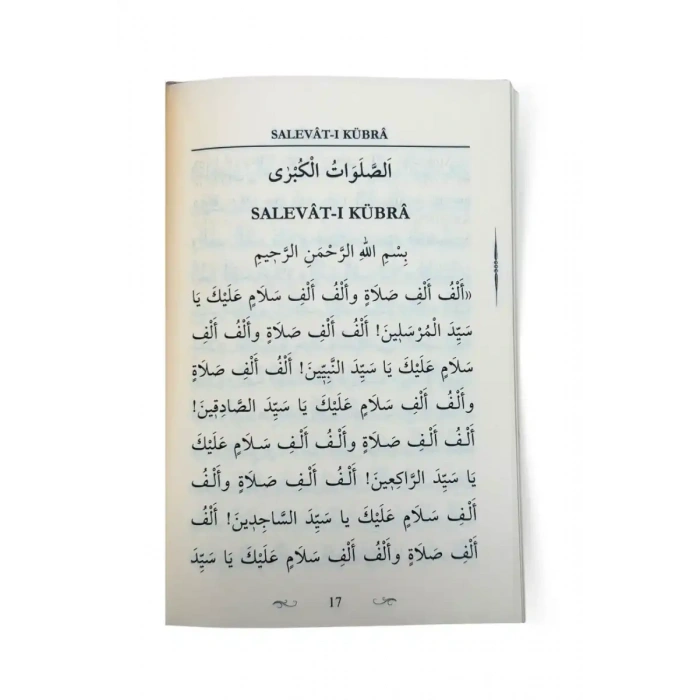 SALEVÂT-I KÜBRÂ
اَلصَّلَوَاتُ الْكُبْرٰى
SALEVÂT-I KÜBRÂ
بِسْمِ اللهِ الرَّحْمَنِ الرَّحٖيمِ
«أَلْفُ أَلْفِ صَلَاةٍ وأَلْفُ أَلْفِ سَلَامٍ عَلَيْكَ يَا
سَيِّدَ الْمُرْسَلٖينَ! أَلْفُ أَلْفِ صَلَاةٍ وأَلْفُ أَلْفِ
سَلَامٍ عَلَيْكَ يَا سَيِّدَ النَّبِيّٖينَ! أَلْفُ أَلْفِ صَلَاةٍ
وأَلْفُ أَلْفِ سَلَامٍ عَلَيْكَ يَا سَيِّدَ الصَّادِقٖينَ!
أَلْفُ أَلْفِ صَلَاةٍ وأَلْفُ أَلْفِ سَلَامٍ عَلَيْكَ
يَا سَيِّدَ الرَّاكِعٖينَ! أَلْفُ أَلْفِ صَلَاةٍ وأَلْفُ
أَلْفِ سَلَامٍ عَلَيْكَ يا سَيِّدَ السَّاجِدٖينَ! أَلْفُ
أَلْفِ صَلَاةٍ وأَلْفُ أَلْفِ سَلَامٍ عَلَيْكَ يَا سَيِّدَ
17